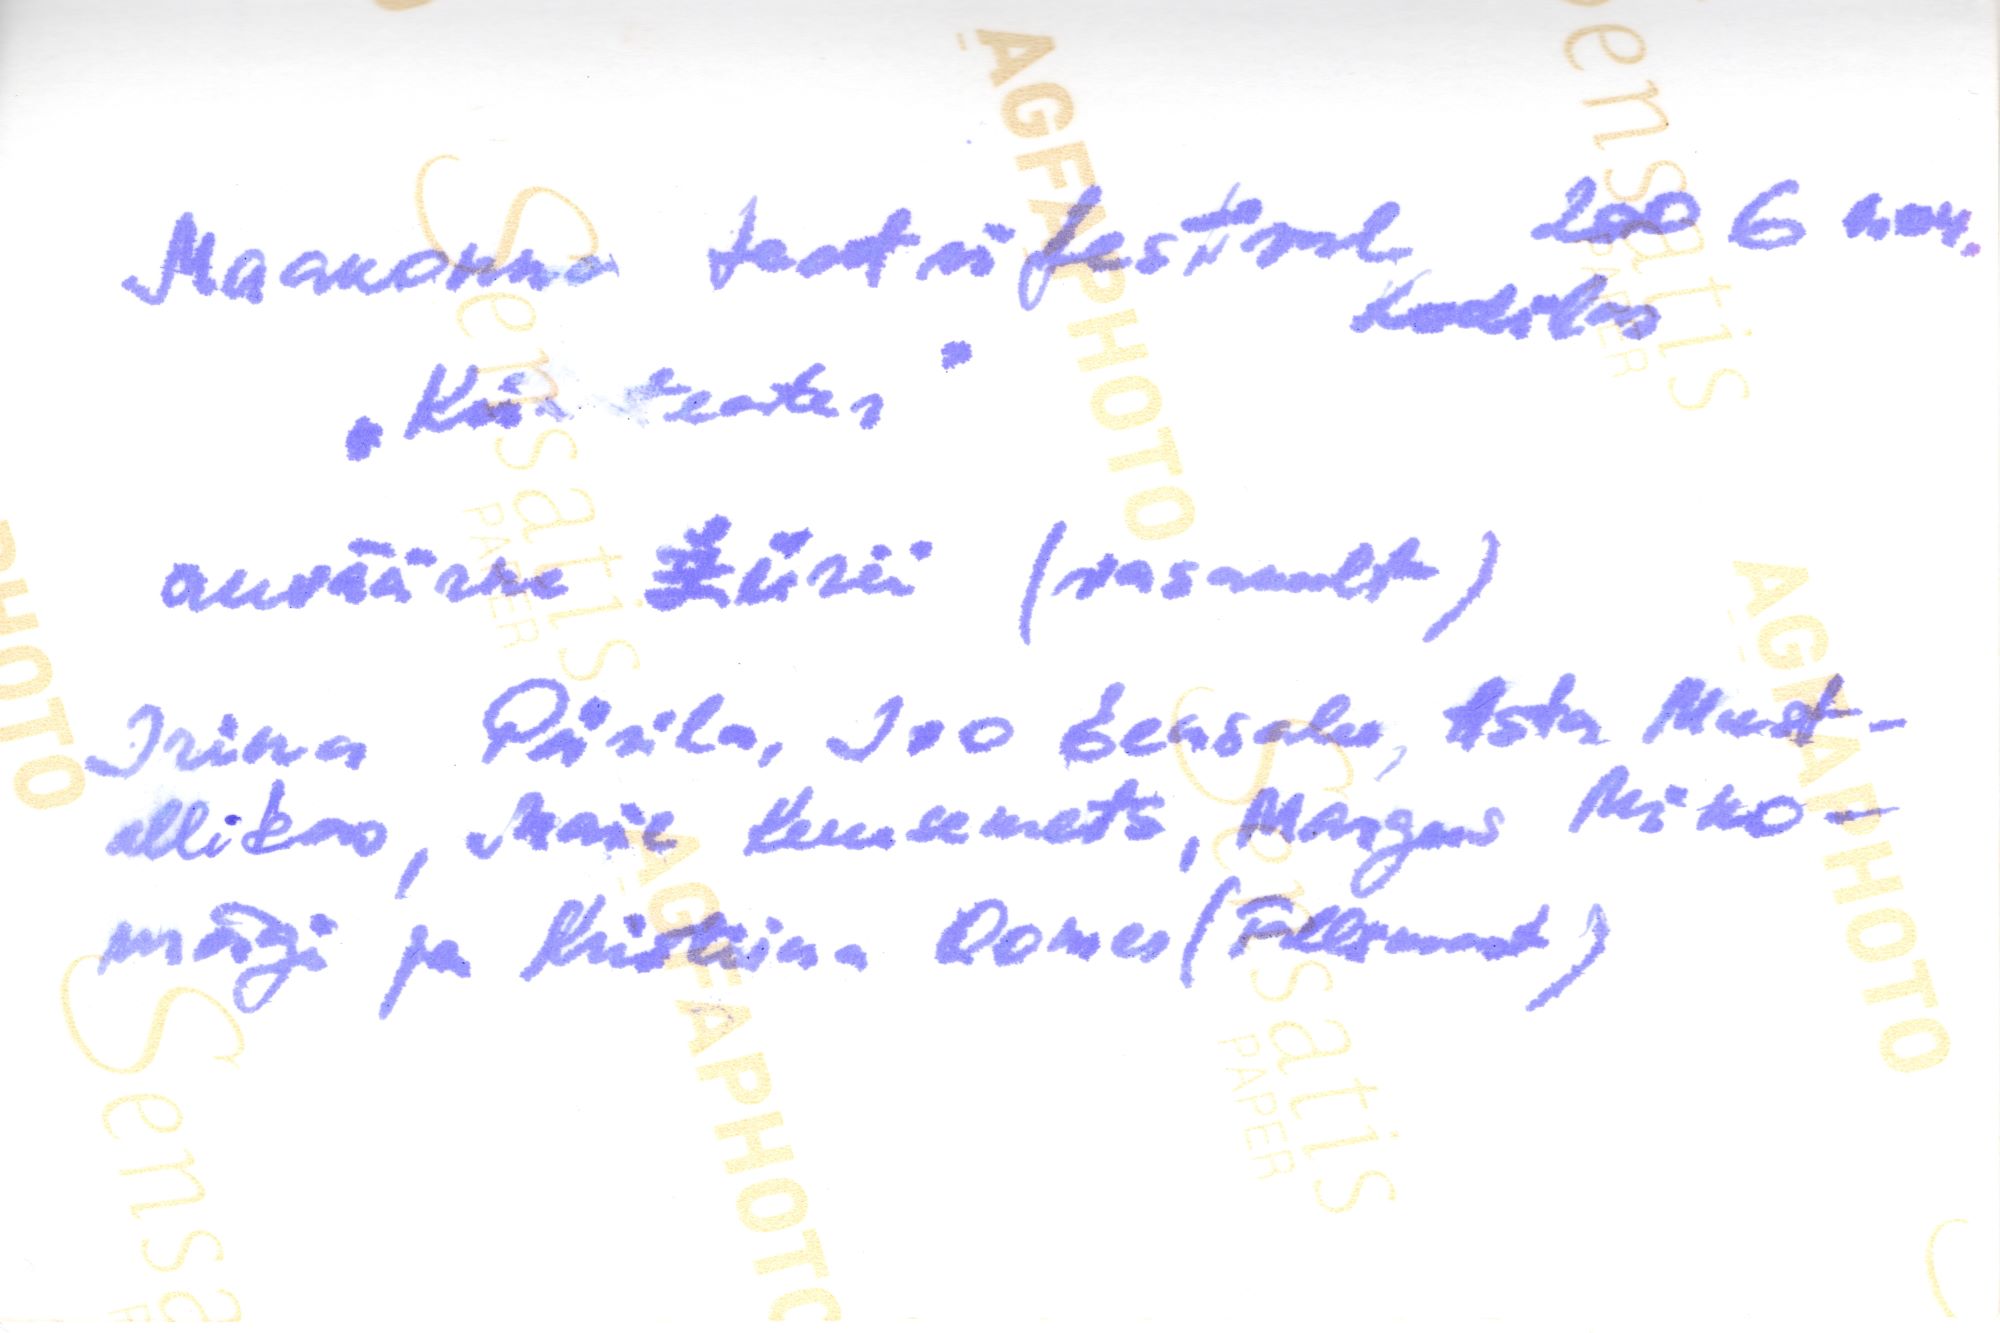 Maakonna teatrifestival 2006 nov.
Kodilas
"Küü teater"
auväärne Žürii (vasakult)
Irina Pärila, Ivo Eensalu, Asta Must-
allikas, Maie Kerusemets, Margus Miko-
märgi ja Kristiina Oomer (Tillsmant)
AGFAPHOTO
Sensatis
PAPER